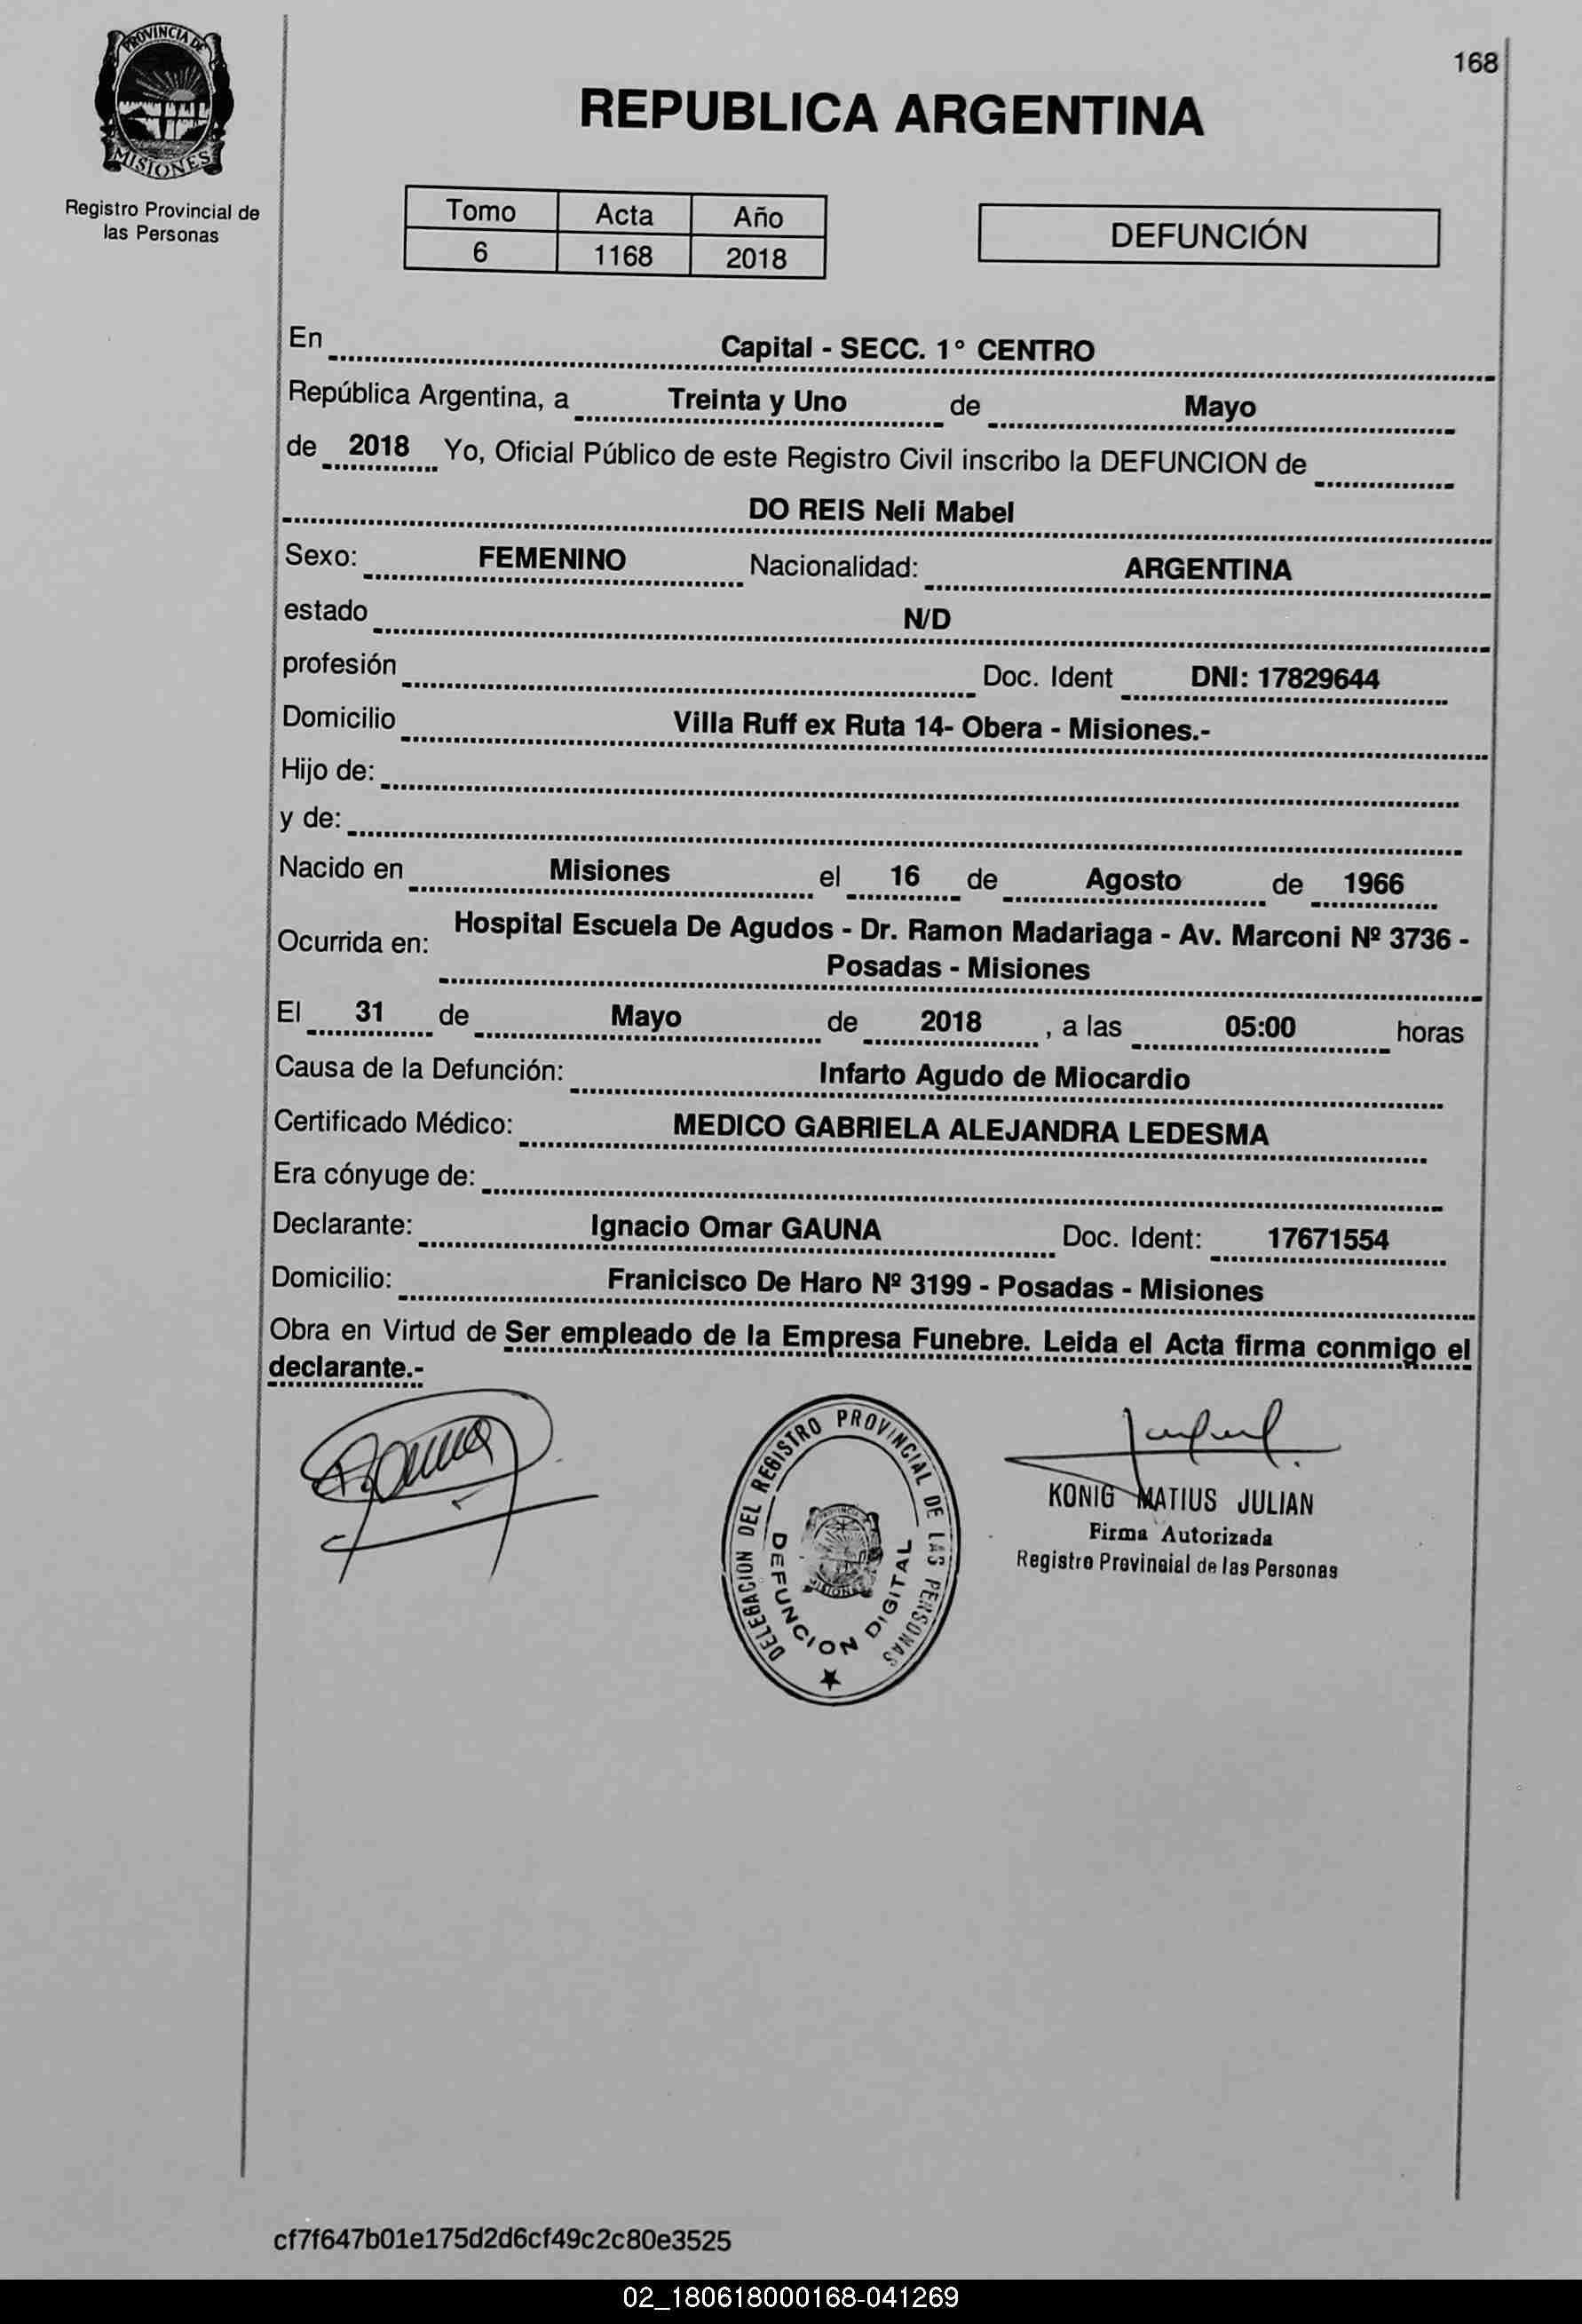 PROVINCIA DE
MISIONES
Registro Provincial de
las Personas
168
REPUBLICA ARGENTINA
Tomo Acta Año
6 1168 2018
DEFUNCIÓN
En Capital - SECC. 1° CENTRO
República Argentina, a Treinta y Uno de Mayo
de 2018 Yo, Oficial Público de este Registro Civil inscribo la DEFUNCION de
DO REIS Neli Mabel
Sexo: FEMENINO Nacionalidad: ARGENTINA
estado N/D
profesión Doc. Ident DNI: 17829644
Domicilio Villa Ruff ex Ruta 14- Obera - Misiones.-
Hijo de:
y de:
Nacido en Misiones el 16 de Agosto de 1966
Ocurrida en: Hospital Escuela De Agudos - Dr. Ramon Madariaga - Av. Marconi Nº 3736 -
Posadas - Misiones
El 31 de Mayo de 2018 , a las 05:00 horas
Causa de la Defunción: Infarto Agudo de Miocardio
Certificado Médico: MEDICO GABRIELA ALEJANDRA LEDESMA
Era cónyuge de:
Declarante: Ignacio Omar GAUNA Doc. Ident: 17671554
Domicilio: Franicisco De Haro Nº 3199 - Posadas - Misiones
Obra en Virtud de Ser empleado de la Empresa Funebre. Leida el Acta firma conmigo el
declarante.-
DELEGACION DEL REGISTRO PROVINCIAL DE LAS PERSONAS
DEFUNCION DIGITAL
MISIONES
KONIG MATIUS JULIAN
Firma Autorizada
Registro Provincial de las Personas
cf7f647b01e175d2d6cf49c2c80e3525
02_180618000168-041269